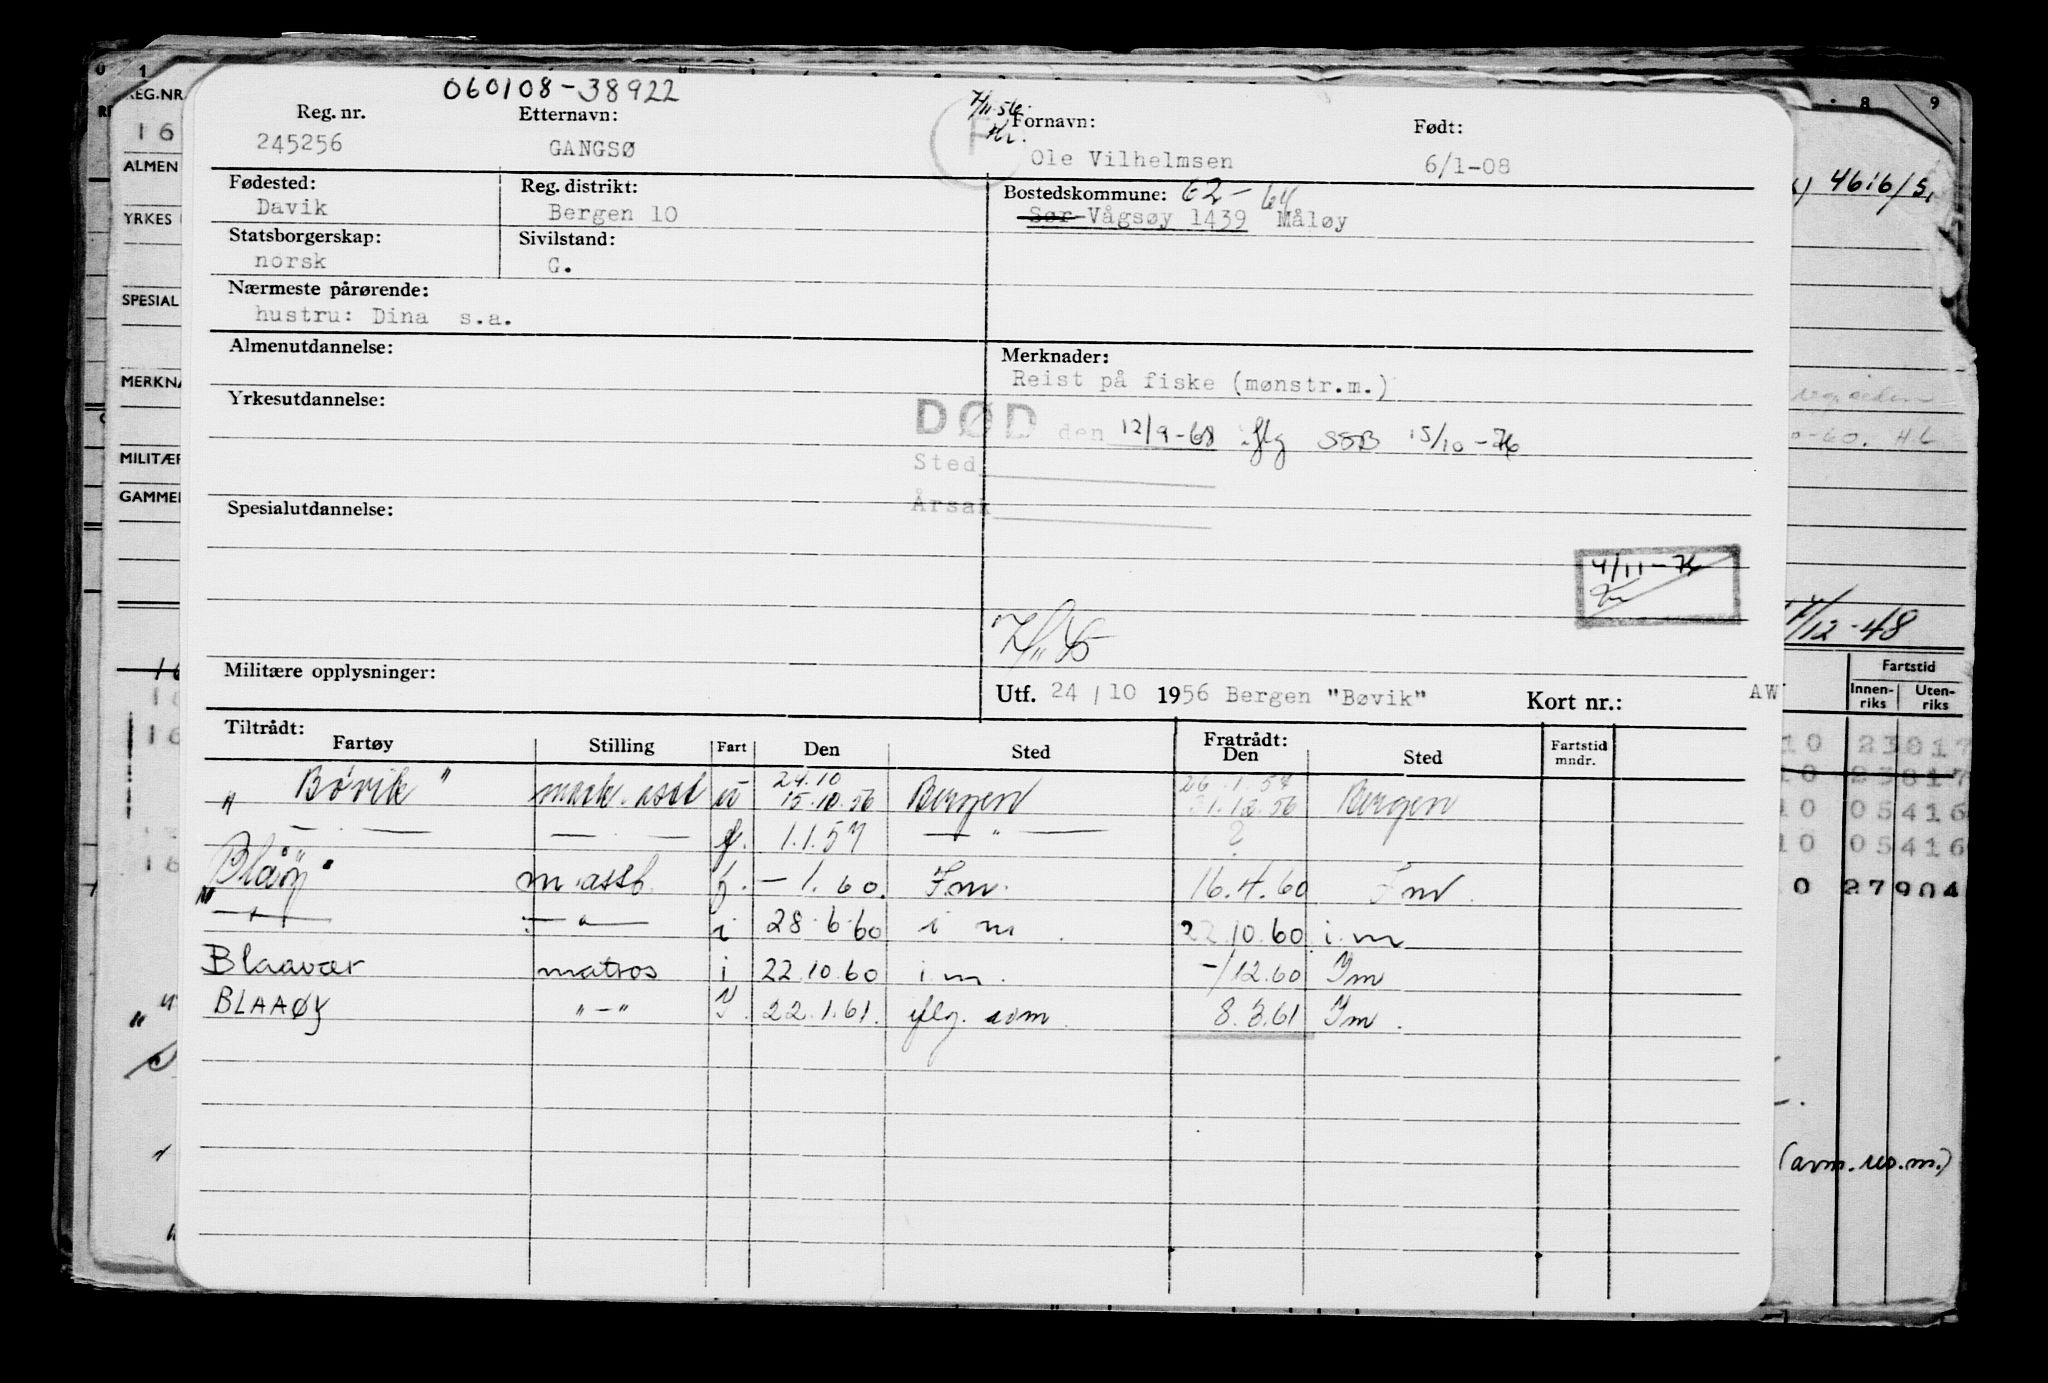 060108-38922
Reg. nr. Etternavn: Fornavn: Født:
245256 GANGSØ Ole Vilhelmsen 6/1-08
7/11-56
Fødested: Reg. distrikt: Bostedskommune: 62-64
Davik Bergen 10 Sør-Vågsøy 1439 Måløy
Statsborgerskap: Sivilstand:
norsk G.
Nærmeste pårørende:
hustru: Dina s.a.
Almenutdannelse: Merknader:
Reist på fiske (mønstr.m.)
Yrkesutdannelse:
DØD den 12/9-68 iflg SSB 15/10-76
Sted
Årsak
Spesialutdannelse:
4/11-76
Militære opplysninger:
Utf. 24/10 1956 Bergen "Bøvik" Kort nr.: AW
Tiltrådt: Fratrådt:
Fartøy Stilling Fart Den Sted Den Sted Fartstid mndr.
24.10 26.1.57
"Bøvik" mask. asst u 15.10.56 Bergen 31.12.56 Bergen
— . — — . — f. 1.1.57 — " — ?
"Blåøy" m.asst. f. -1.60. Im. 16.4.60 Im.
— " — — " — i 28.6.60 i m 22.10.60 i.m
Blaavær matros i 22.10.60 i.m. -/12.60 Im
BLAAØY " — " I. 22.1.61. iflg. avm. 8.3.61 Im.
REG.NR.
16
ALMEN
YRKES
SPESIAL
MERKNA
MILITÆR
GAMMEL
4616/5
0-60. HL
/12-48
Fartstid
Innenriks Utenriks
10 23817
10 23817
10 05416
10 05416
0 27904
(avm. us. m.)